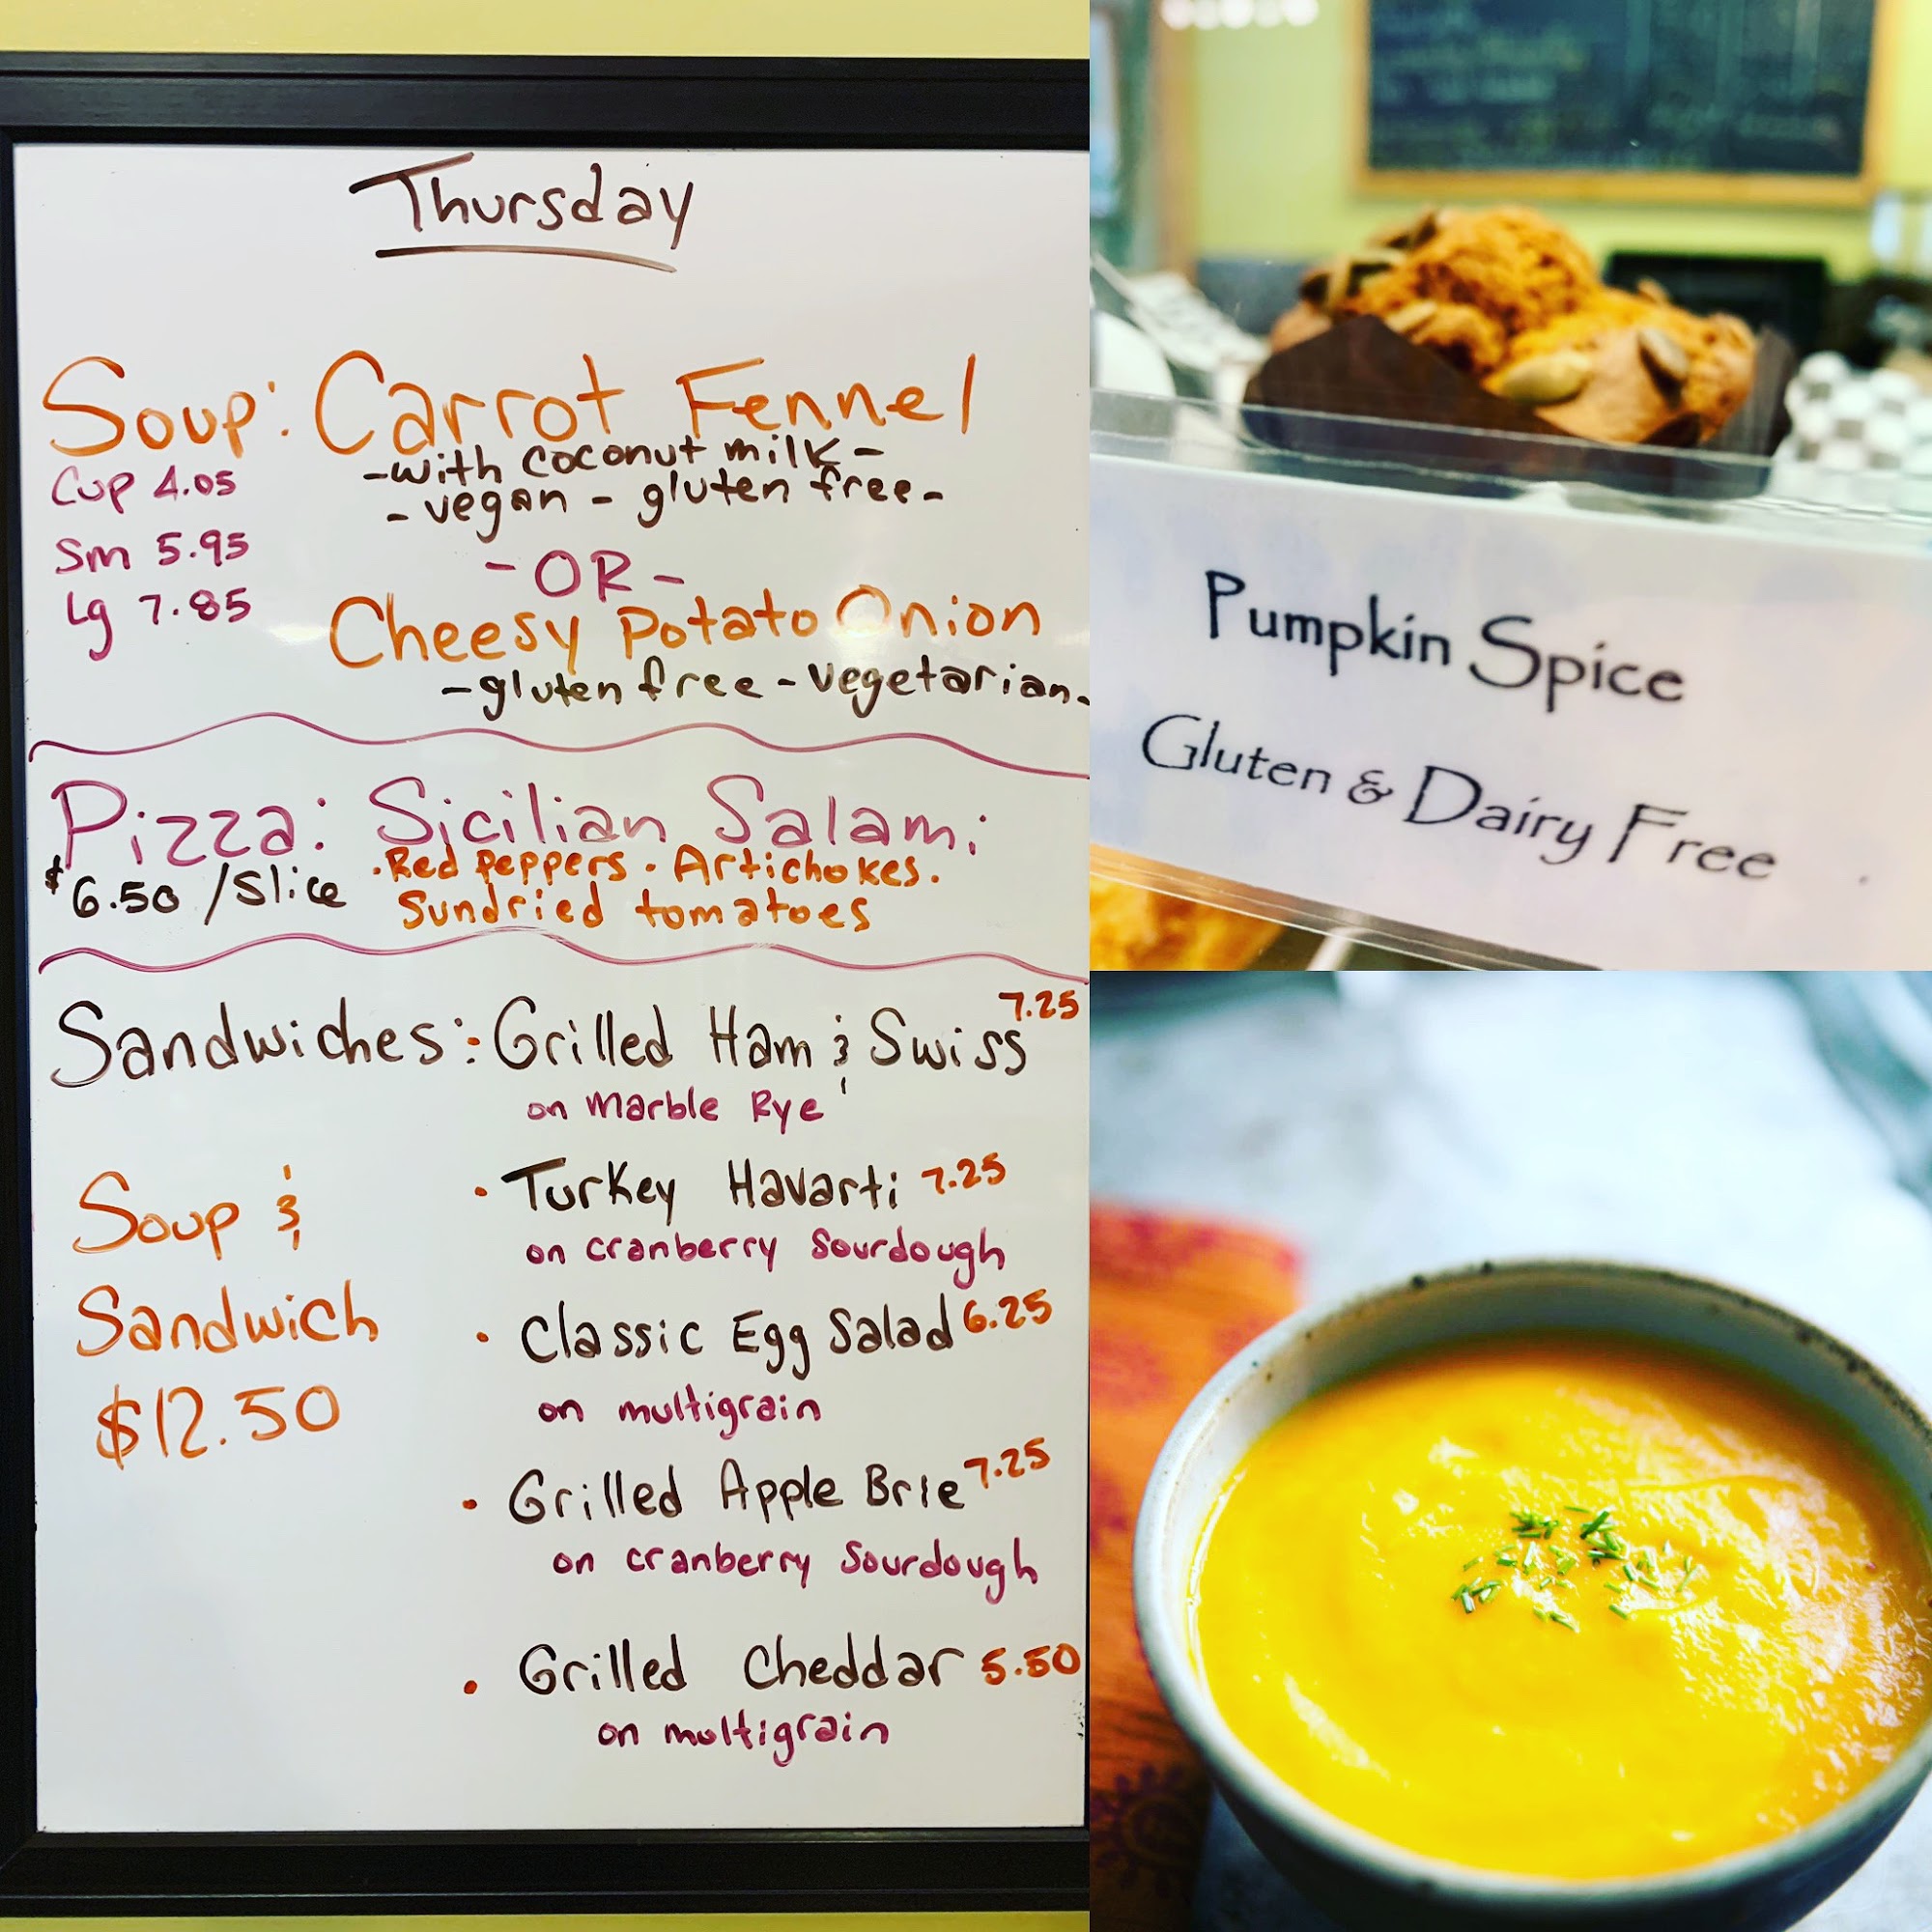 Thursday
Soup: Carrot Fennel
-with coconut milk-
-vegan-gluten free-
Cup 4.05
Sm 5.95
Lg 7.85
-OR-
Cheesy Potato Onion
-gluten free-vegetarian-
Pizza: Sicilian Salami
$6.50/Slice
·Red peppers·Artichokes·
Sundried tomatoes
Sandwiches: Grilled Ham & Swiss 7.25
on Marble Rye
• Turkey Havarti 7.25
on cranberry Sourdough
• Classic Egg Salad 6.25
on multigrain
• Grilled Apple Brie 7.25
on cranberry Sourdough
• Grilled Cheddar 5.50
on multigrain
Soup &
Sandwich
$12.50
Pumpkin Spice
Gluten & Dairy Free